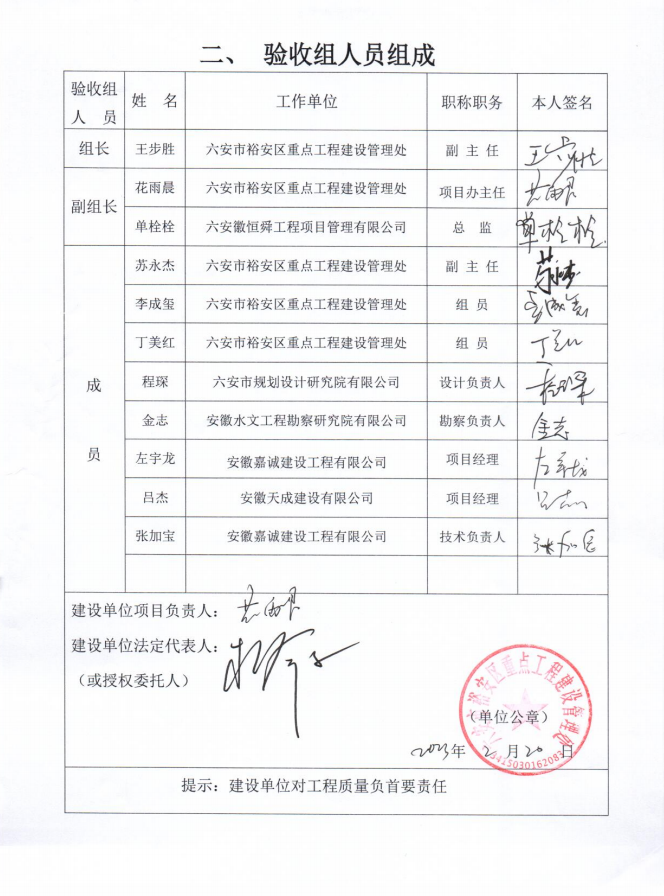 二、 验收组人员组成
验收组人 员 姓 名 工作单位 职称职务 本人签名
组长 王步胜 六安市裕安区重点工程建设管理处 副 主 任
副组长 花雨晨 六安市裕安区重点工程建设管理处 项目办主任 花雨晨
单栓栓 六安徽恒舜工程项目管理有限公司 总 监 单栓栓
成员 苏永杰 六安市裕安区重点工程建设管理处 副 主 任
李成玺 六安市裕安区重点工程建设管理处 组 员 李成玺
丁美红 六安市裕安区重点工程建设管理处 组 员 丁美红
程琛 六安市规划设计研究院有限公司 设计负责人 程琛
金志 安徽水文工程勘察研究院有限公司 勘察负责人 金志
左宇龙 安徽嘉诚建设工程有限公司 项目经理 左宇龙
吕杰 安徽天成建设有限公司 项目经理 吕杰
张加宝 安徽嘉诚建设工程有限公司 技术负责人 张加宝
建设单位项目负责人： 花雨晨
建设单位法定代表人：
（或授权委托人）
六安市裕安区重点工程建设管理处
（单位公章）
2023年 2 月 20 日
3415030162083
提示：建设单位对工程质量负首要责任